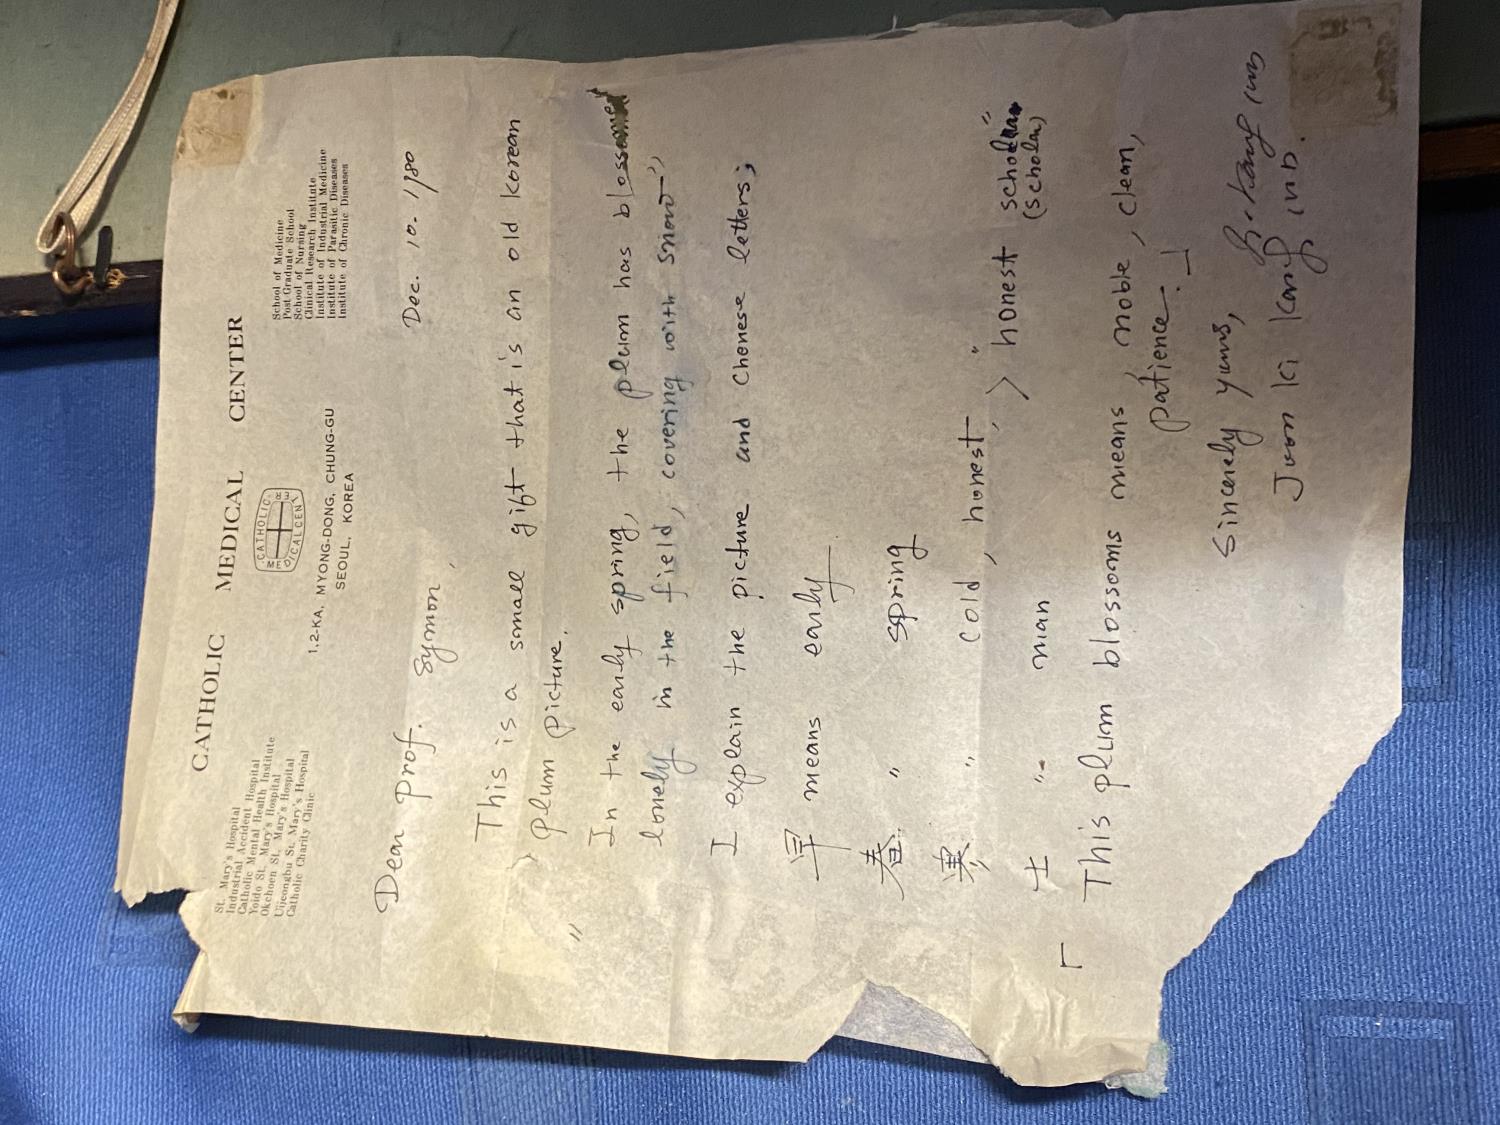 CATHOLIC MEDICAL CENTER
St. Mary's Hospital
Industrial Accident Hospital
Catholic Mental Health Institute
Yoido St. Mary's Hospital
Okchoen St. Mary's Hospital
Uijeongbu St. Mary's Hospital
Catholic Charity Clinic
CATHOLIC
MEDICAL CENTER
1.2-KA, MYONG-DONG, CHUNG-GU
SEOUL, KOREA
School of Medicine
Post Graduate School
School of Nursing
Clinical Research Institute
Institute of Industrial Medicine
Institute of Parasitic Diseases
Institute of Chronic Diseases
Dec. 10. 1980
Dear Prof. Symon,
This is a small gift that is an old Korean
plum picture.
" In the early spring, the plum has blossomed
lonely in the field, covering with snow",
I explain the picture and Chenese letters;
早 means early
春 " spring
寒 " cold, honest, > "honest scholar"
(scholar)
士 " man
「 This plum blossoms means, noble, clean,
patience. 」
Sincerely yours,
Joon Ki Kang M.D.